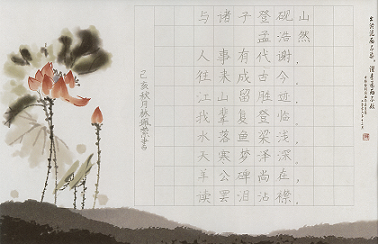 与诸子登岘山
孟浩然
人事有代谢，
往来成古今。
江山留胜迹，
我辈复登临。
水落鱼梁浅，
天寒梦泽深。
羊公碑尚在，
读罢泪沾襟。
己亥秋月
出淤泥而不染
濯清涟而不妖